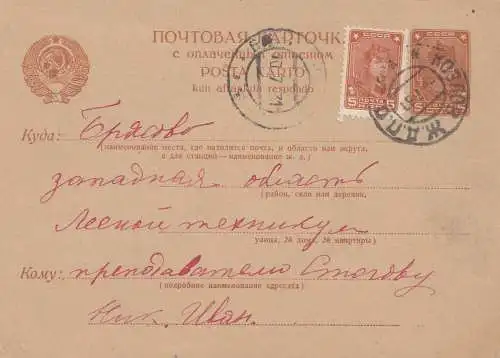 ПОЧТОВАЯ КАРТОЧК
с оплаченным ответом
POŜTA KARTO
kun afrankita respondo
СССР
5 5
Куда: Брасово
(наименование места, где находится почта, и области или округа,
а для станций—наименование ж. д.)
западная область
(район, село или деревня,
Лесной техникум
улица, № дома, № квартиры)
Кому: преподавателю Стогову
(подробное наименование адресата)
Ник. Иван.